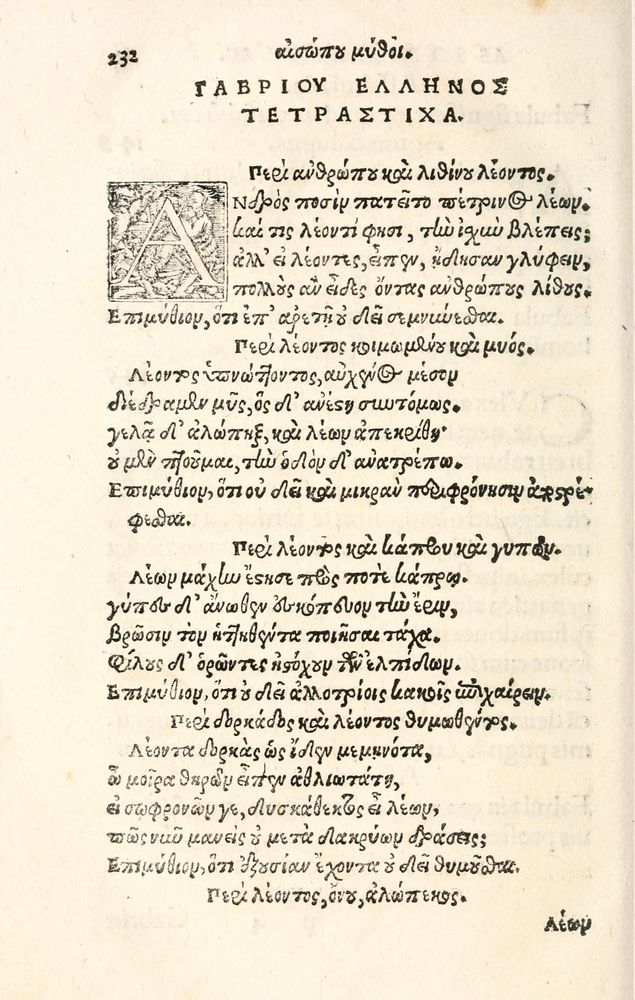 232 αἰσώπου μῦθοι.
ΓΑΒΡΙΟΥ ΕΛΛΗΝΟΣ
ΤΕΤΡΑΣΤΙΧΑ.
Περὶ ἀνθρώπου καὶ λιθίνου λέοντος.
ΑΝδρὸς ποσὶν πατεῖτο πέτρινος λέων.
καί τις λέοντί φησι, τὴν ἰσχὺν βλέπεις;
ἀλλ' εἰ λέοντες, εἶπεν, ᾔδεισαν γλύφειν,
πολλοὺς ἂν εἶδες ὄντας ἀνθρώπους λίθους.
Επιμύθιον, ὅτι ἐπ' ἀρετῇ οὐ δεῖ σεμνύνεσθαι.
Περὶ λέοντος κοιμωμένου καὶ μυός.
Λέοντος ὑπνώττοντος, αὐχένος μέσον
διέδραμεν μῦς, ὃς δ' ἀνέστη συντόμως.
γελᾷ δ' ἀλώπηξ, καὶ λέων ἀπεκρίθη·
οὐ μῦν πτοοῦμαι, τὴν ὁδὸν δ' ἀνατρέπω.
Επιμύθιον, ὅτι οὐ δεῖ καὶ μικρὰν περιφρόνησιν
φεσθαι.
Περὶ λέοντος καὶ κάπρου καὶ γυπῶν.
Λέων μάχην ἔστησε πρός ποτε κάπρῳ.
γύπες δ' ἄνωθεν ἐσκόπευον τὴν ἔριν,
βρῶσιν τὸν ἡττηθέντα ποιῆσαι τάχα.
Φίλους δ' ὁρῶντες ἠστόχουν τῶν ἐλπίδων.
Επιμύθιον, ὅτι οὐ δεῖ ἀλλοτρίοις κακοῖς ἐπιχαίρειν.
Περὶ δορκάδος καὶ λέοντος θυμωθέντος.
Λέοντα δορκὰς ὡς ἴδεν μεμηνότα,
ὦ μοῖρα θηρῶν εἶπεν ἀθλιωτάτη,
εἰ σωφρονῶν γε, δυσκάθεκτος εἶ λέων,
πῶς νῦν μανεὶς οὐ μετὰ δακρύων δράσεις;
Επιμύθιον, ὅτι ἐξουσίαν ἔχοντα οὐ δεῖ θυμοῦσθαι.
Περὶ λέοντος, ὄνου, ἀλώπεκος.
Λέων